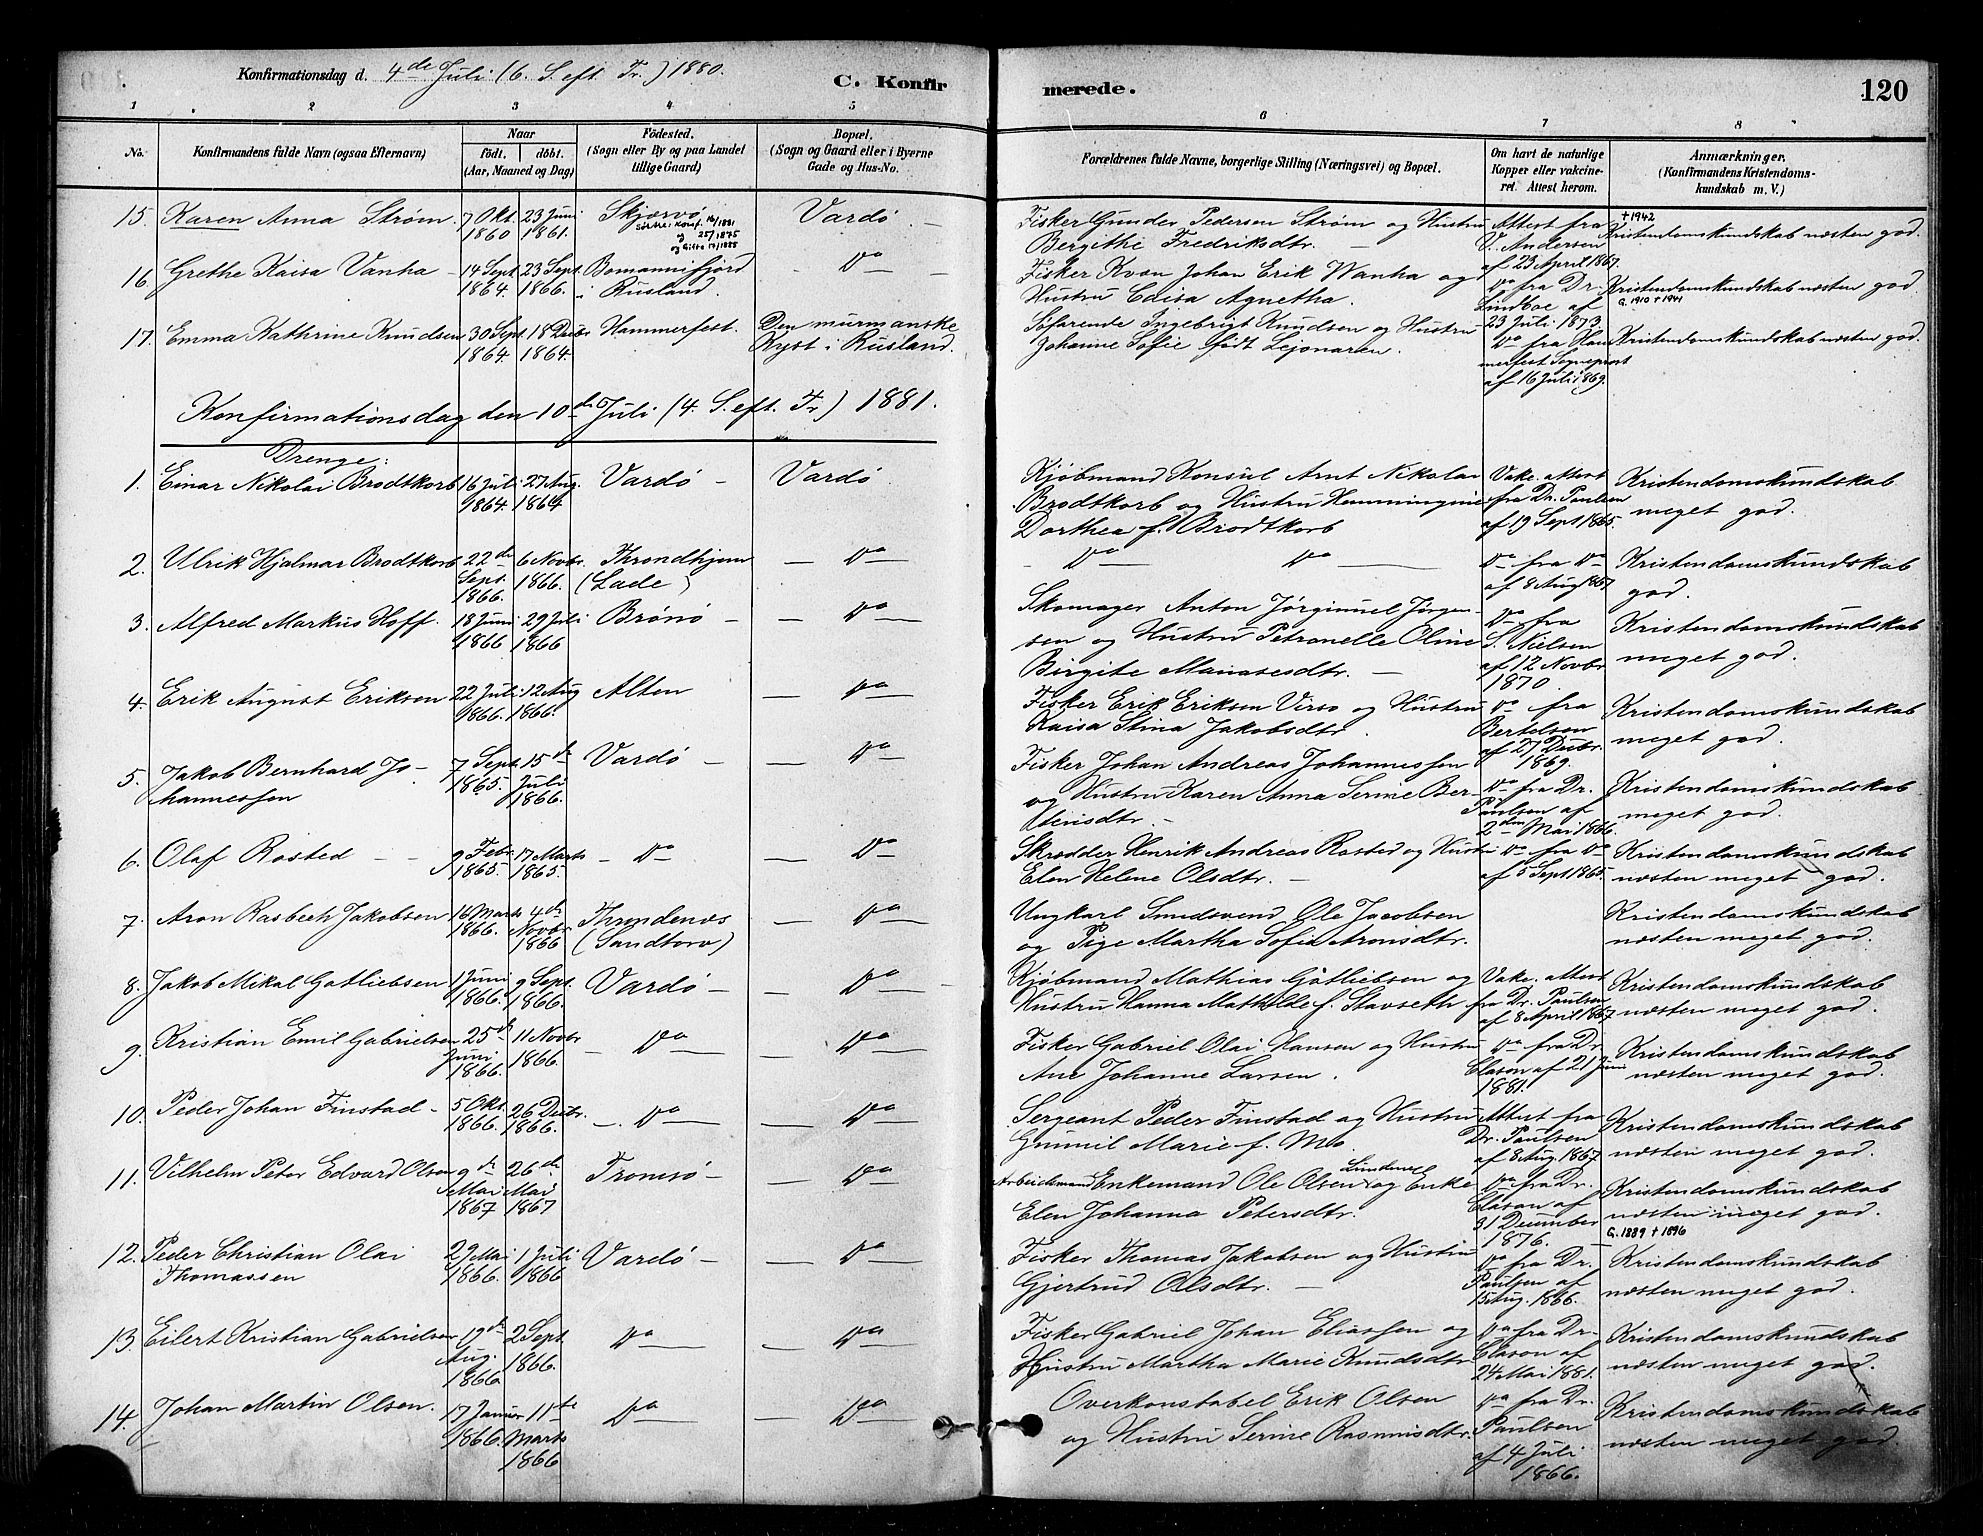 Konfirmationsdag d. 4de Juli (6. S. eft. Tr.) 1880.
C. Konfirmerede.
120
1 2 3 4 5 6 7 8
No.
Konfirmandens fulde Navn (ogsaa Efternavn)
Naar
födt. döbt.
(Aar, Maaned og Dag)
Födested.
(Sogn eller By og paa Landet
tillige Gaard)
Bopæl.
(Sogn og Gaard eller i Byerne
Gade og Hus-No.
Forældrenes fulde Navne, borgerlige Stilling (Næringsvei) og Bopæl.
Om havt de naturlige
Kopper eller vakcine-
ret. Attest herom.
Anmærkninger.
(Konfirmandens Kristendoms-
kundskab m. V.)
15. Karen Anna Strøm 7 Okt. 1860 23 Juni 1861. Skjærvø Vardø
Fisker Gunder Pedersen Strøm og Hustru
Bergithe Fredriksdtr.
Attest fra
V. Andersen
af 23 April 1867.
† 1942
Kristendomskundskab næsten god.
16. Grethe Kaisa Vanha 14 Sept. 1864. 23 Sept. 1866. Bomannifjord i Rusland. Do
Fisker Kvæn Johan Erik Wanha og
Hustru Caisa Agnetha.
Do fra Dr.
Lindboe af
23 Juli 1873.
Kristendomskundskab næsten god.
G. 1910 † 1941
17. Emma Kathrine Knudsen 30 Sept. 1864. 18 Decbr 1864. Hammerfest. Den murmanske Kyst i Rusland.
Søfarende Ingebrigt Knudsen og Hustru
Johanne Sofie født Lejonaren.
Do fra Ham
merfest Sogneprest
af 16 Juli 1869.
Kristendomskundskab næsten god.
Konfirmationsdag den 10de Juli (4. S. eft. Tr) 1881.
Drenge:
1. Einar Nikolai Brodtkorb 16 Juli 1864. 27 Aug. 1864 Vardø Vardø
Kjøbmand Konsul Arnt Nikolai
Brodtkorb og Hustru Hemmingine
Dorthea f. Brodtkorb
Vake. attest
fra Dr. Paulsen
af 19 Sept 1865.
Kristendomskundskab
meget god.
2. Ulrik Hjalmar Brodtkorb 22de Sept. 1866. 6 Novbr. 1866. Throndhjem (Lade) Do
Do Do
Do fra Do
af 8 Aug 1867
Kristendomskundskab
god.
3. Alfred Markus Hoff. 18 Juni 1866 29 Juli 1866 Brønø Do
Skomager Anton Jørginuel Jørgen-
sen og Hustru Petronelle Oline
Birgite Manasesdtr.
Do fra
S. Nielsen
af 12 Novbr
1870.
Kristendomskundskab
meget god.
4. Erik August Erikson 22 Juli 1866. 12 Aug 1866. Alten Do
Fisker Erik Erikson Virso og Hustru
Kaisa Stina Jakobsdtr.
Do fra
Bertelsen
af 27 Decbr.
1869.
Kristendomskundskab
meget god.
5. Jakob Bernhard Jo-
hannessen 7 Sept. 1865. 15de Juli 1866. Vardø Do
Fisker Johan Andreas Johannessen
og Hustru Karen Anna Serine Ber-
tensdtr.
Do fra Dr.
Paulsen af
2den Mai 1866.
Kristendomskundskab
meget god.
6. Olaf Rosted 9 Febr. 1865. 17 Marts 1865. Do Do
Skrædder Henrik Andreas Rosted og Hustru
Elen Helene Olsdtr.
Do fra Do
af 5 Sept 1865.
Kristendomskundskab
næsten meget god.
7. Aron Rasbech Jakobsen 16 Marts 1866. 4de Novbr. 1866 Throndenæs (Sandtorv) Do
Ungkarl Smedsvend Ole Jacobsen
og Pige Martha Sofie Aronsdtr.
Kristendomskundskab
næsten meget god.
8. Jakob Mikal Gotliebsen 1 Juni 1866. 9 Sept. 1866. Vardø Do
Kjøbmand Mathias Gotliebsen og
Hustru Hanna Mathilde f. Stavseth
Vake. attest
fra Dr. Paulsen
af 8 April 1867
Kristendomskundskab
næsten meget god.
9. Kristian Emil Gabrielsen 25de Juni 1866. 11 Novbr 1866. Do Do
Fisker Gabriel Olai Hansen og Hustru
Ane Johanne Larsen.
Do fra Dr.
Clason af 21 Juni
1881.
Kristendomskundskab
næsten meget god.
10. Peder Johan Finstad 5 Okt. 1866. 26 Decbr. 1866. Do Do
Sergeant Peder Finstad og Hustru
Gunnil Marie f. Mo.
Attest fra
Dr. Paulsen
af 8 Aug. 1867
Kristendomskundskab
næsten meget god.
11. Vilhelm Peter Edvard Olsen 9de Mai 1867 26de Mai 1867 Tromsø Do
Arbeidsmand Enkemand Ole Olsen og Enke
Elen Johanna Petersdtr.
Do fra Dr.
Clason af
31 December
1876.
Kristendomskundskab
næsten meget god.
G. 1889 † 1896
12. Peder Christian Olai
Thomassen 29 Mai 1866. 1 Juli 1866 Vardø Do
Fisker Thomas Jakobsen og Hustru
Gjertrud Olsdtr.
Do fra Dr.
Paulsen af
15 Aug. 1866.
Kristendomskundskab
næsten meget god.
13. Eilert Kristian Gabrielsen 19de Aug. 1866 2 Sept. 1866. Do Do
Fisker Gabriel Johan Eliassen og
Hustru Martha Marie Knudsdtr.
Do fra Dr.
Clason af
24 Mai 1881.
Kristendomskundskab
næsten meget god.
14. Johan Martin Olsen. 17 Januar 1866. 11te Marts 1866 Do Do
Overkonstabel Erik Olsen
og Hustru Serine Rasmusdtr.
Do fra Dr.
Paulsen
af 4 Juli
1866.
Kristendomskundskab
næsten meget god.